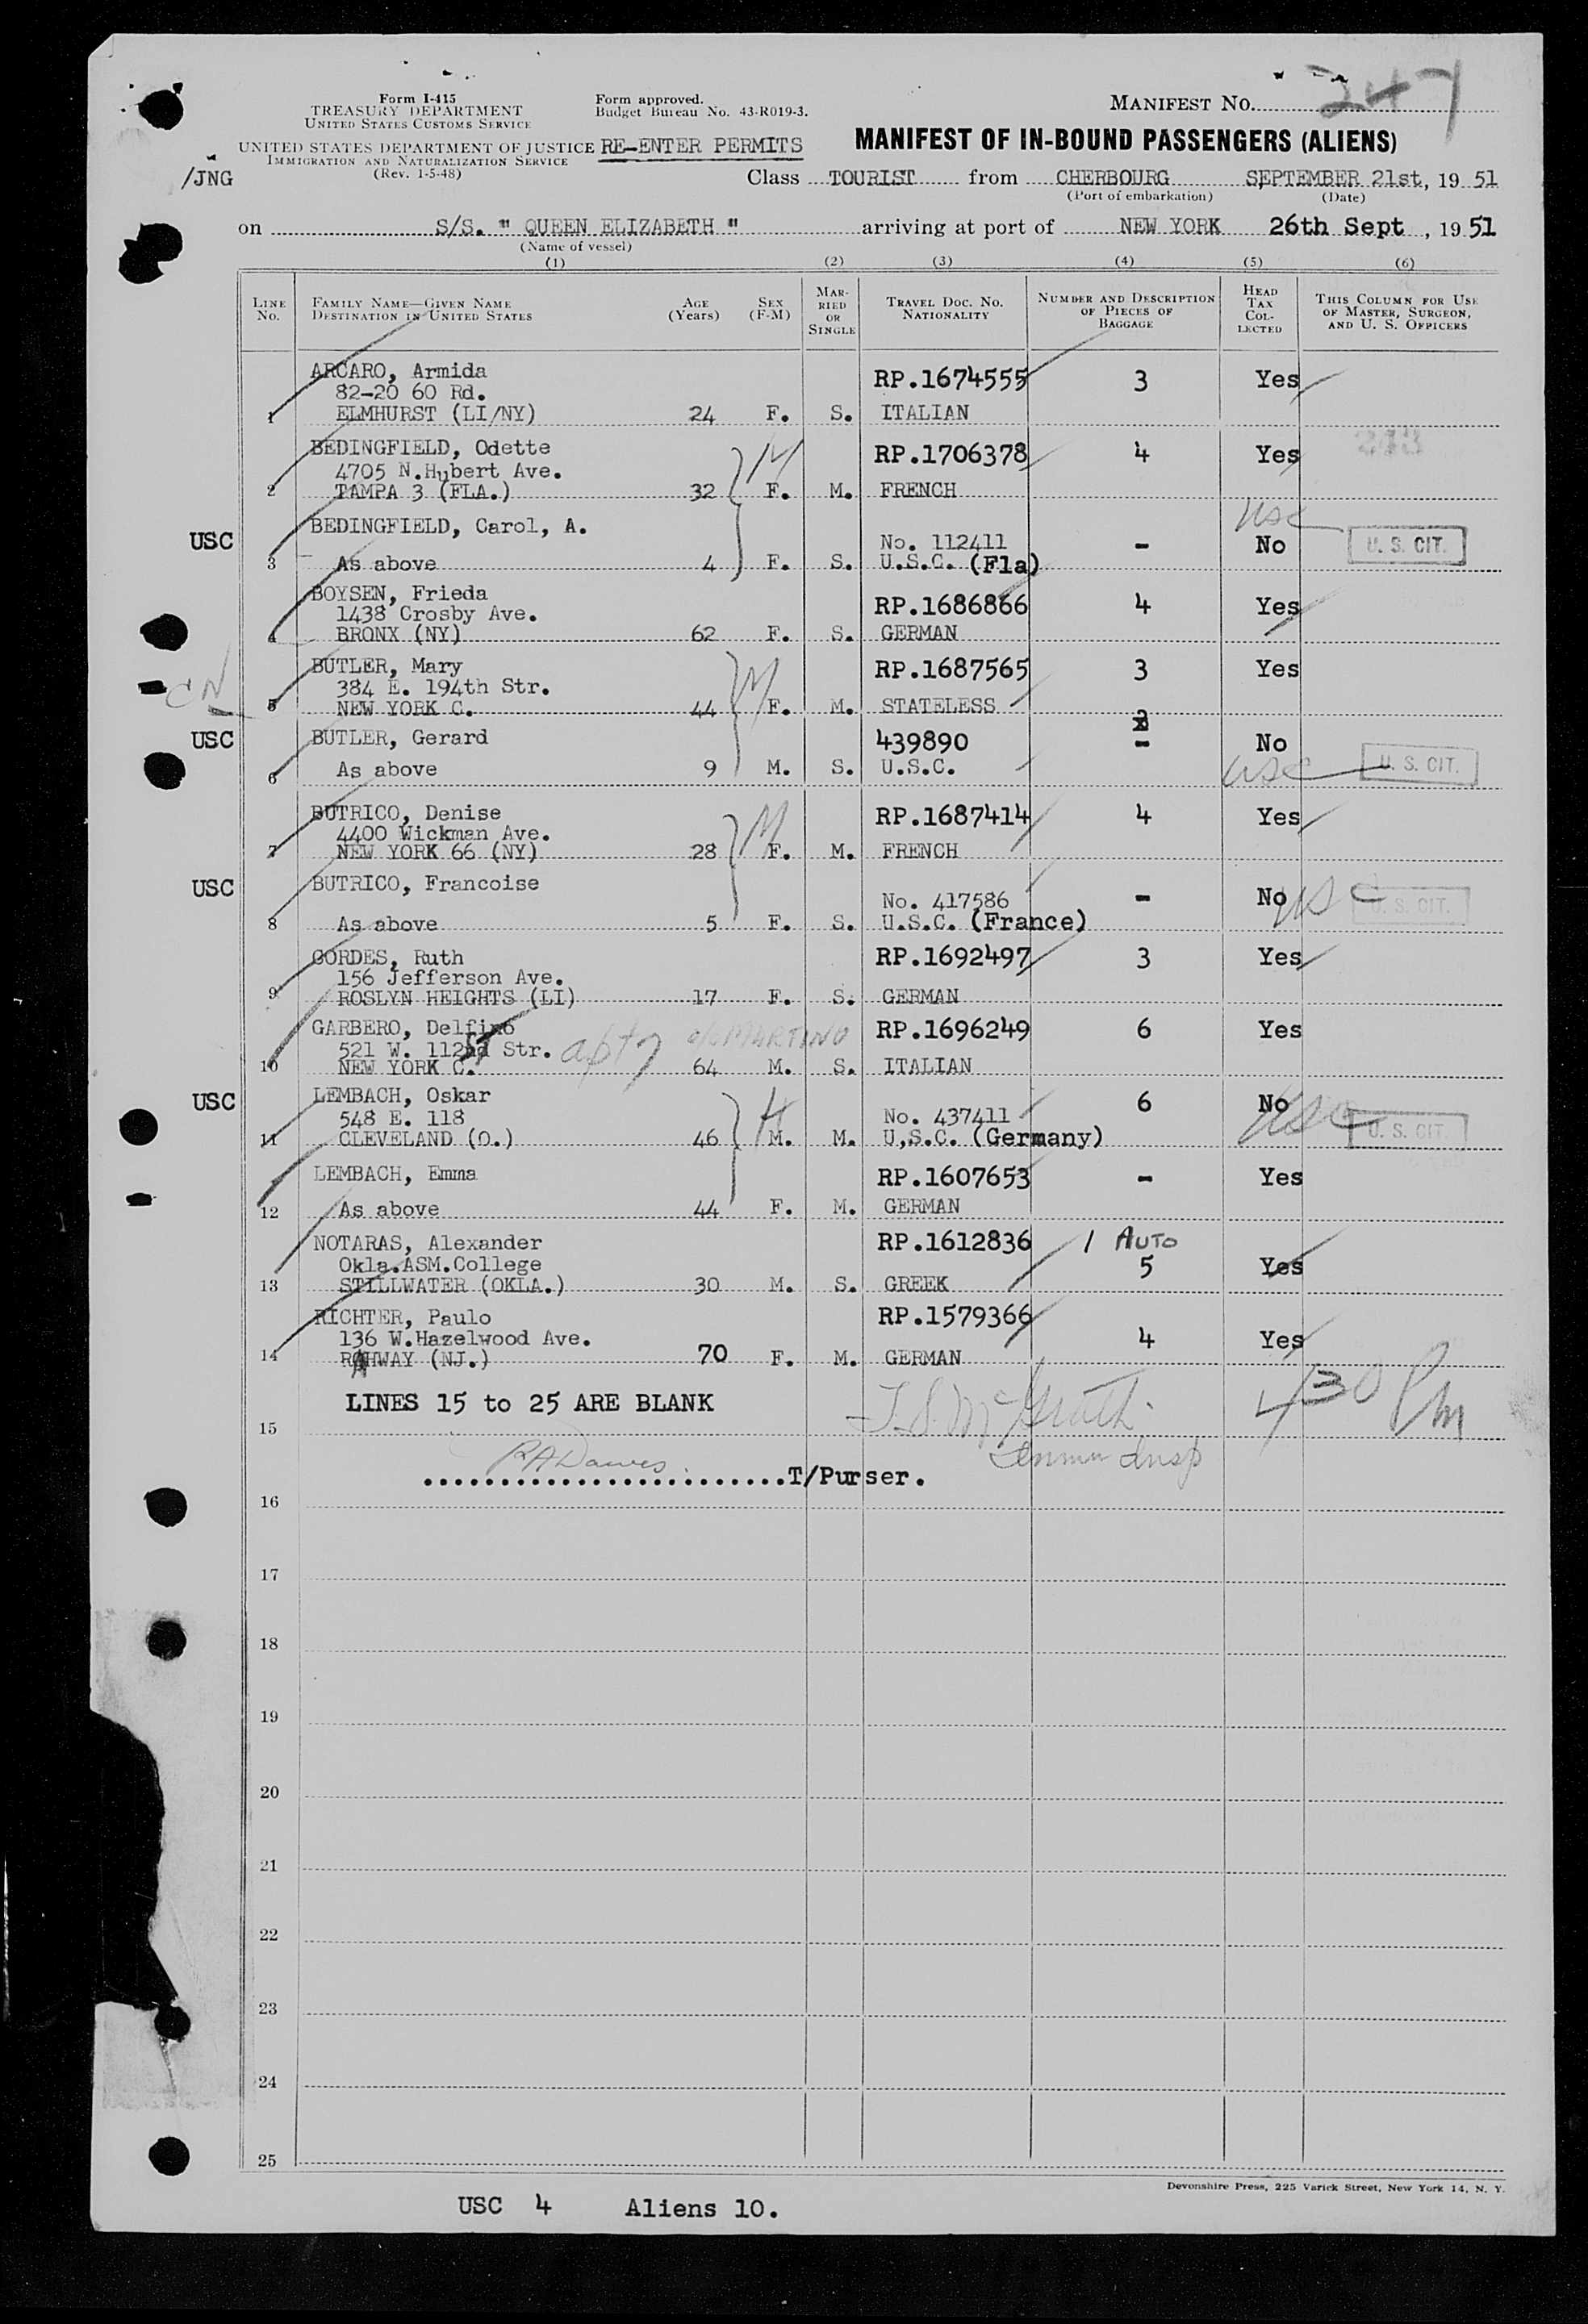 Form I-415
TREASURY DEPARTMENT
UNITED STATES CUSTOMS SERVICE
UNITED STATES DEPARTMENT OF JUSTICE
IMMIGRATION AND NATURALIZATION SERVICE
(Rev. 1-5-48)
/JNG
Form approved.
Budget Bureau No. 43-R019-3.
RE-ENTER PERMITS
MANIFEST NO. 247
MANIFEST OF IN-BOUND PASSENGERS (ALIENS)
Class TOURIST from CHERBOURG SEPTEMBER 21st, 19 51
(Port of embarkation) (Date)
on S/S. " QUEEN ELIZABETH " arriving at port of NEW YORK 26th Sept, 19 51
(Name of vessel)
(1) (2) (3) (4) (5) (6)
LINE NO. FAMILY NAME—GIVEN NAME DESTINATION IN UNITED STATES AGE (Years) SEX (F-M) MARRIED OR SINGLE TRAVEL DOC. NO. NATIONALITY NUMBER AND DESCRIPTION OF PIECES OF BAGGAGE HEAD TAX COLLECTED THIS COLUMN FOR USE OF MASTER, SURGEON, AND U. S. OFFICERS
ARCARO, Armida RP.1674555 3 Yes
82-20 60 Rd.
1 ELMHURST (LI/NY) 24 F. S. ITALIAN
BEDINGFIELD, Odette M RP.1706378 4 Yes 243
4705 N.Hubert Ave.
2 TAMPA 3 (FLA.) 32 F. M. FRENCH
USC BEDINGFIELD, Carol, A. No. 112411 - No usc U. S. CIT.
3 As above 4 F. S. U.S.C. (Fla)
BOYSEN, Frieda RP.1686866 4 Yes
1438 Crosby Ave.
4 BRONX (NY) 62 F. S. GERMAN
BUTLER, Mary M RP.1687565 3 Yes
384 E. 194th Str.
CN 5 NEW YORK C. 44 F. M. STATELESS
USC BUTLER, Gerard 439890 - No
6 As above 9 M. S. U.S.C. usc U. S. CIT.
BUTRICO, Denise M RP.1687414 4 Yes
4400 Wickman Ave.
7 NEW YORK 66 (NY) 28 F. M. FRENCH
USC BUTRICO, Francoise No. 417586 - No usc U. S. CIT.
8 As above 5 F. S. U.S.C. (France)
GORDES, Ruth RP.1692497 3 Yes
156 Jefferson Ave.
9 ROSLYN HEIGHTS (LI) 17 F. S. GERMAN
GARBERO, Delfino RP.1696249 6 Yes
521 W. 112 Str. apt 7 c/o MARTINO
10 NEW YORK C. 64 M. S. ITALIAN
USC LEMBACH, Oskar H No. 437411 6 No usc U. S. CIT.
548 E. 118
11 CLEVELAND (O.) 46 M. M. U.S.C. (Germany)
LEMBACH, Emma RP.1607653 - Yes
12 As above 44 F. M. GERMAN
NOTARAS, Alexander RP.1612836 1 AUTO
Okla.ASM.College 5 Yes
13 STILLWATER (OKLA.) 30 M. S. GREEK
RICHTER, Paulo RP.1579366
136 W.Hazelwood Ave. 4 Yes
14 RAHWAY (NJ.) 70 F. M. GERMAN
LINES 15 to 25 ARE BLANK McGrath 430 Pm
15
RADawes Immn Insp
........................T/Purser.
16
17
18
19
20
21
22
23
24
25
Devonshire Press, 225 Varick Street, New York 14, N. Y.
USC 4 Aliens 10.